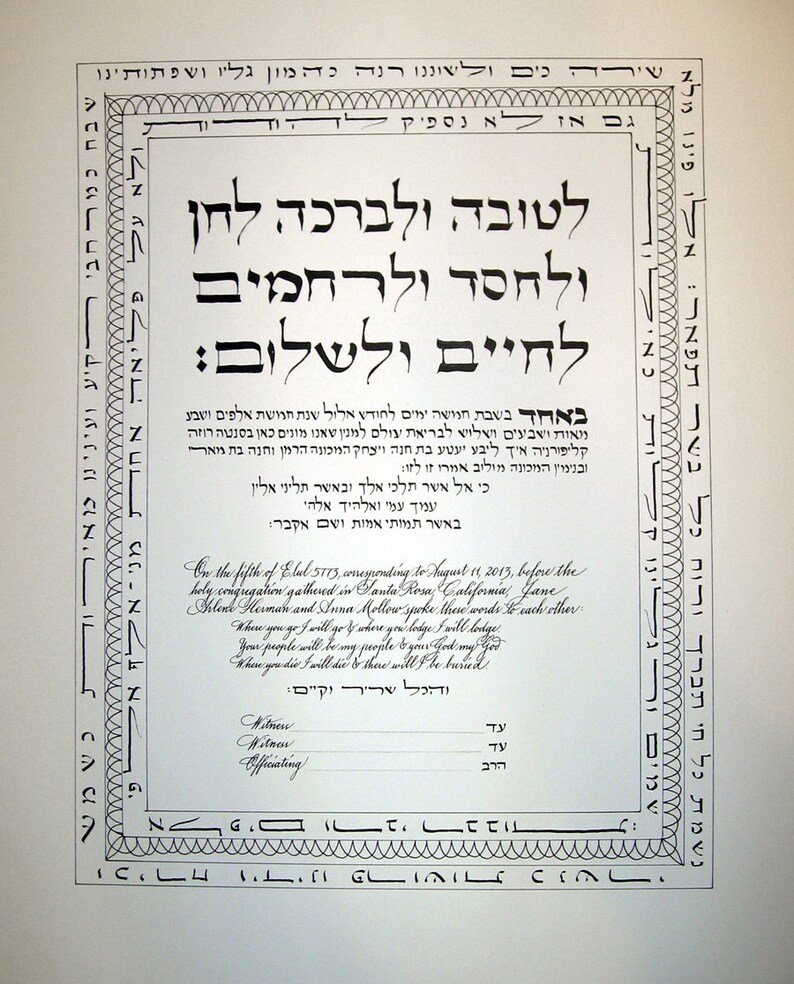 נשמת כל חי תברך ורוח כל בשר תפאר: אלו פינו מלא
שירה כים ולשוננו רנה כהמון גליו ושפתותינו
שבח כמרחבי רקיע ועינינו מאירות כשמש
וכירח וידינו פרושות כנשרי
שמים ורגלינו קלות כאילות
גם אז לא נספיק להודות
ולא על פליאה אחת מני-אלף אלפי
אלפים ורבי רבבות:
לטובה ולברכה לחן
ולחסד ולרחמים
לחיים ולשלום:
באחד בשבת חמשה ימים לחודש אלול שנת חמשת אלפים ושבע
מאות ושבעים ושליש לבריאת עולם למנין שאנו מונים כאן בסנטה רוזה
קליפורניה איך ליבע יעטע בת חנה ויצחק המכונה הרמן וחנה בת מארי
ובנימין המכונה מולוב אמרו זו לזו:
כי אל אשר תלכי אלך ובאשר תליני אלין
עמך עמי ואלהיך אלהי
באשר תמותי אמות ושם אקבר:
On the fifth of Elul 5773, corresponding to August 11, 2013, before the
holy congregation gathered in Santa Rosa, California, Jane
Arlene Herman and Anna Mollow spoke these words to each other:
Where you go I will go & where you lodge I will lodge.
Your people will be my people & your God my God.
Where you die I will die & there will I be buried.
והכל שריר וקיים:
Witness עד
Witness עד
Officiating הרב